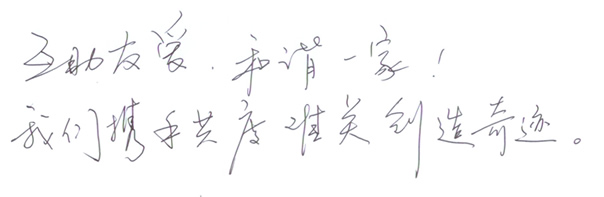 互助友爱.和谐一家!
我们携手共度难关创造奇迹。